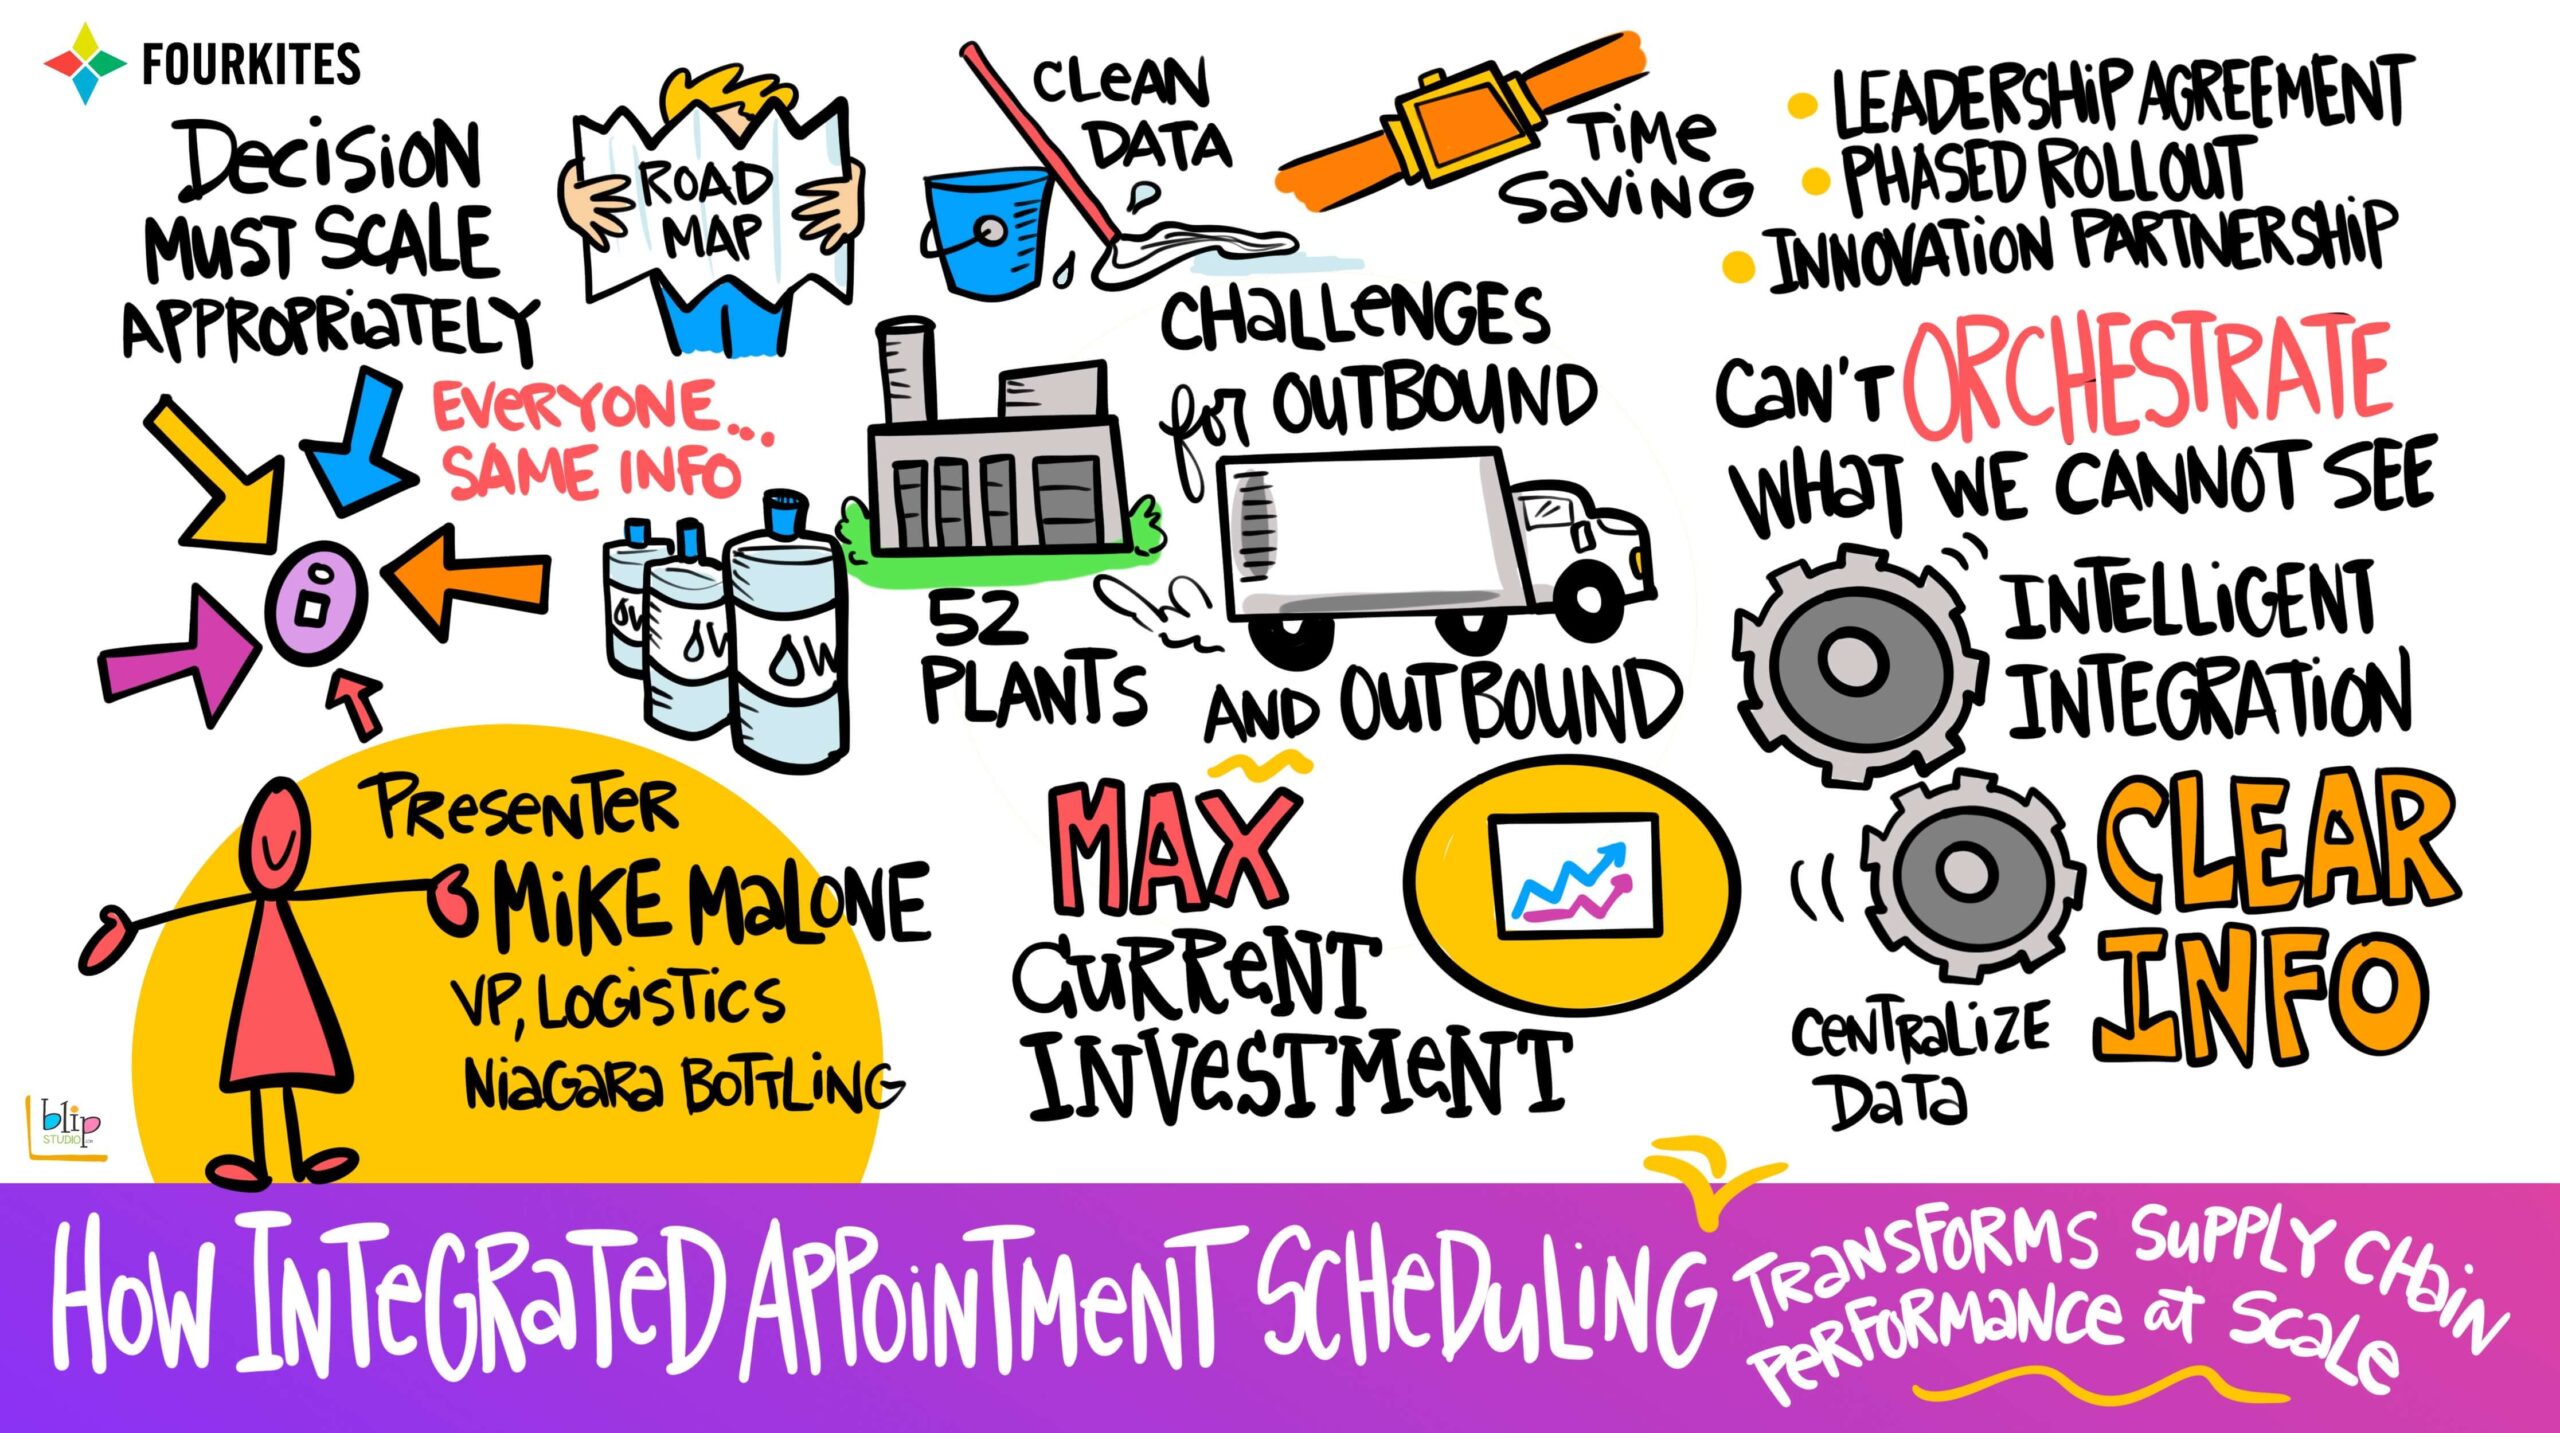 FOURKITES
Decision
Must Scale
Appropriately
Road
Map
Clean
Data
Time
Saving
Leadership Agreement
Phased Rollout
Innovation Partnership
Everyone...
Same Info
Challenges
for Outbound
and Outbound
52
Plants
W
W
W
Can't Orchestrate
What We Cannot See
Intelligent
Integration
Clear
Info
Centralize
Data
Max
Current
Investment
Presenter
Mike Malone
VP, Logistics
Niagara Bottling
blip
STUDIO
How Integrated Appointment Scheduling
Transforms Supply Chain
Performance at Scale